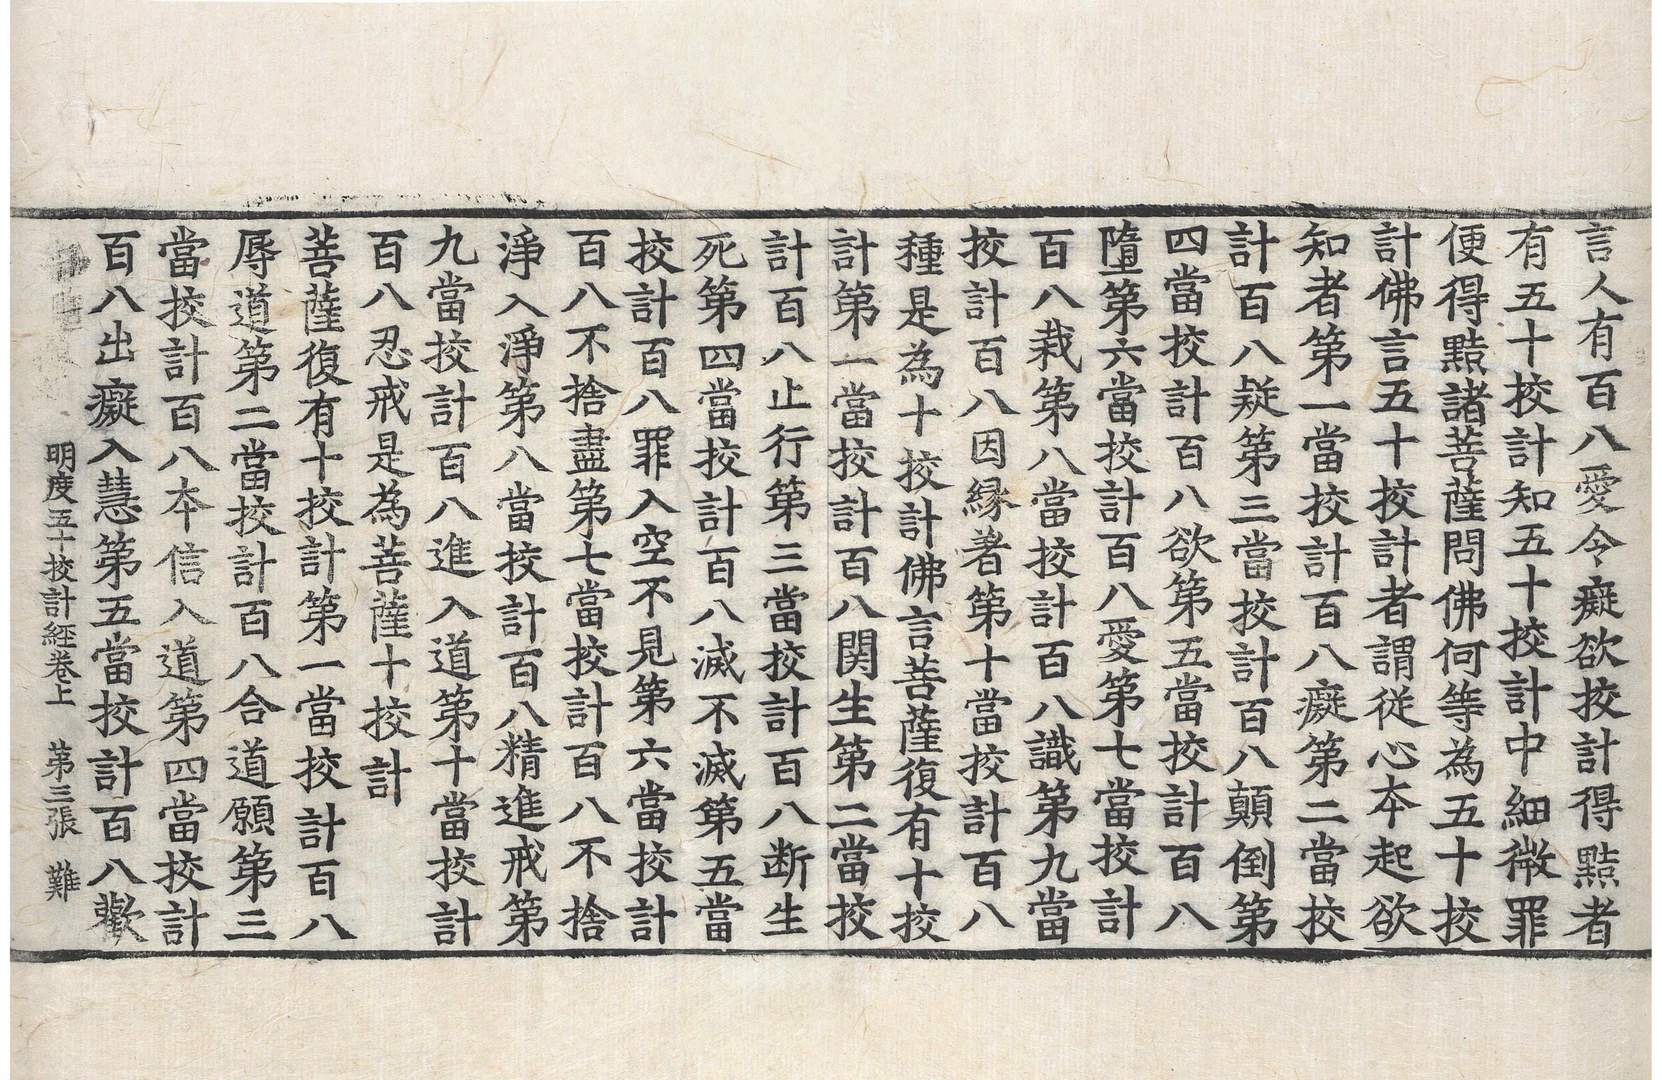 言人有百八愛令癡欲挍計得㸃者
有五十挍計知五十挍計中細微罪
便得㸃諸菩薩問佛何等為五十挍
計佛言五十挍計者謂従心夲起欲
知者第一當挍計百八癡第二當挍
計百八疑第三當挍計百八顛倒第
四當挍計百八欲第五當挍計百八
墮第六當挍計百八愛第七當挍計
百八栽第八當挍計百八識第九當
挍計百八因縁著第十當挍計百八
種是為十挍計佛言菩薩復有十挍
計第一當挍計百八関生第二當挍
計百八止行第三當挍計百八断生
死第四當挍計百八滅不滅第五當
挍計百八罪入空不見第六當挍計
百八不捨盡第七當挍計百八不捨
淨入淨第八當挍計百八精進戒第
九當挍計百八進入道第十當挍計
百八忍戒是為菩薩十挍計
菩薩復有十挍計第一當挍計百八
辱道第二當挍計百八合道願第三
當挍計百八夲信入道第四當挍計
百八出癡入慧第五當挍計百八歡
明度五十挍計經卷上 第三張 難